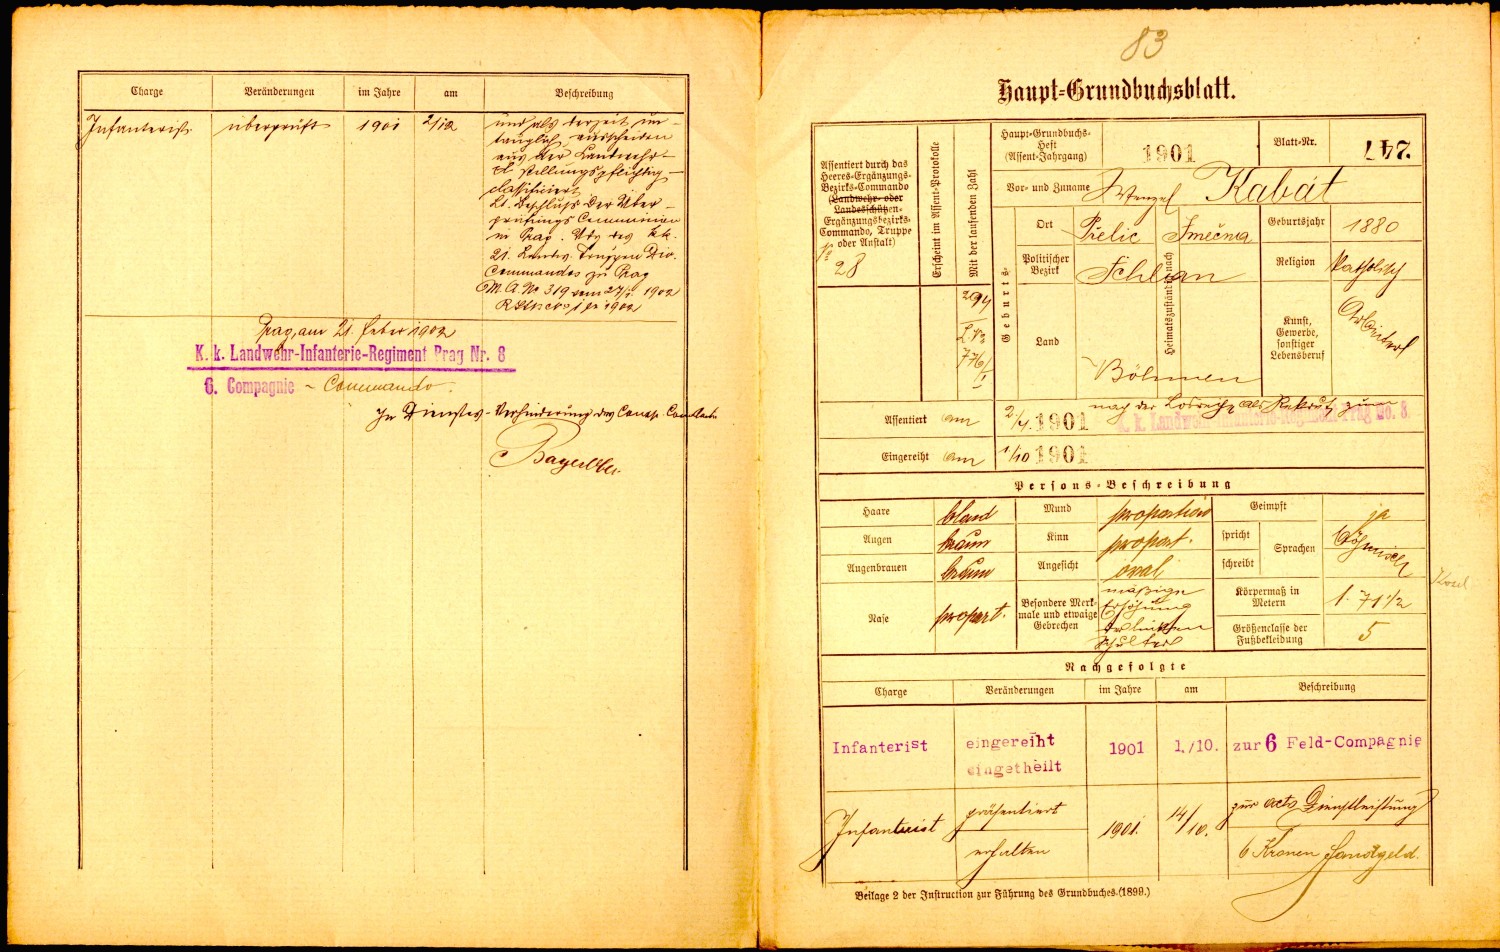 Charge Veränderungen im Jahre am Beschreibung
Infanterist überprüft 1901 2/12 und als derzeit un-
tauglich, ausscheiden
aus der Landwehr-
stellungspflichtig
classificiert
Lt. Beschluss der Über-
prüfungs Commission
in Prag. des kk.
21. Landw. Truppen Div.
Commandos zu Prag
M. A. No 319 vom 27/1. 1902
1902
Prag, am 21. feber 1902
K. k. Landwehr-Infanterie-Regiment Prag Nr. 8
6. Compagnie - Commando.
In Dienstes-Verhinderung des Comp. Comdten
83
Haupt-Grundbuchsblatt.
Assentiert durch das
Heeres-Ergänzungs-
Bezirks-Commando
(Landwehr- oder
Landesschützen-
Ergänzungsbezirks-
Commando, Truppe
oder Anstalt)
No
28
Erscheint im Assent-Protokolle
Mit der laufenden Zahl
294
776/1
Haupt-Grundbuchs-
Heft
(Assent-Jahrgang)
1901
Blatt-Nr.
247
Vor- und Zuname Wenzel Kabát
Geburts-
Ort Přelic
Heimatszuständig nach
Smečna
Geburtsjahr 1880
Politischer
Bezirk
Schlan
Religion katholisch
Land Böhmen
Kunst,
Gewerbe,
sonstiger
Lebensberuf
Arbeiter
Assentiert am 2./4. 1901 nach der Losreihe als Rekrut zum
K. k. Landwehr-Infanterie-Regiment Prag No. 8.
Eingereiht am 1/10 1901
Persons-Beschreibung
Haare blond Mund proportion Geimpft ja
Augen braun Kinn proport. spricht Sprachen böhmisch
Augenbrauen braun Angesicht oval schreibt
Nase proport. Besondere Merk-
male und etwaige
Gebrechen
mäßige
Erhöhung
der linken
Schulter
Körpermaß in
Metern
1. 71 1/2
Größenclasse der
Fußbekleidung
5
Nachgefolgte
Charge Veränderungen im Jahre am Beschreibung
Infanterist eingereiht 1901 1./10. zur 6 Feld-Compagnie
eingetheilt
Infanterist präsentiert 1901. 14/10. zur act. Dienstleistung
erhalten 6 Kronen Handgeld.
Beilage 2 der Instruction zur Führung des Grundbuches (1899.)